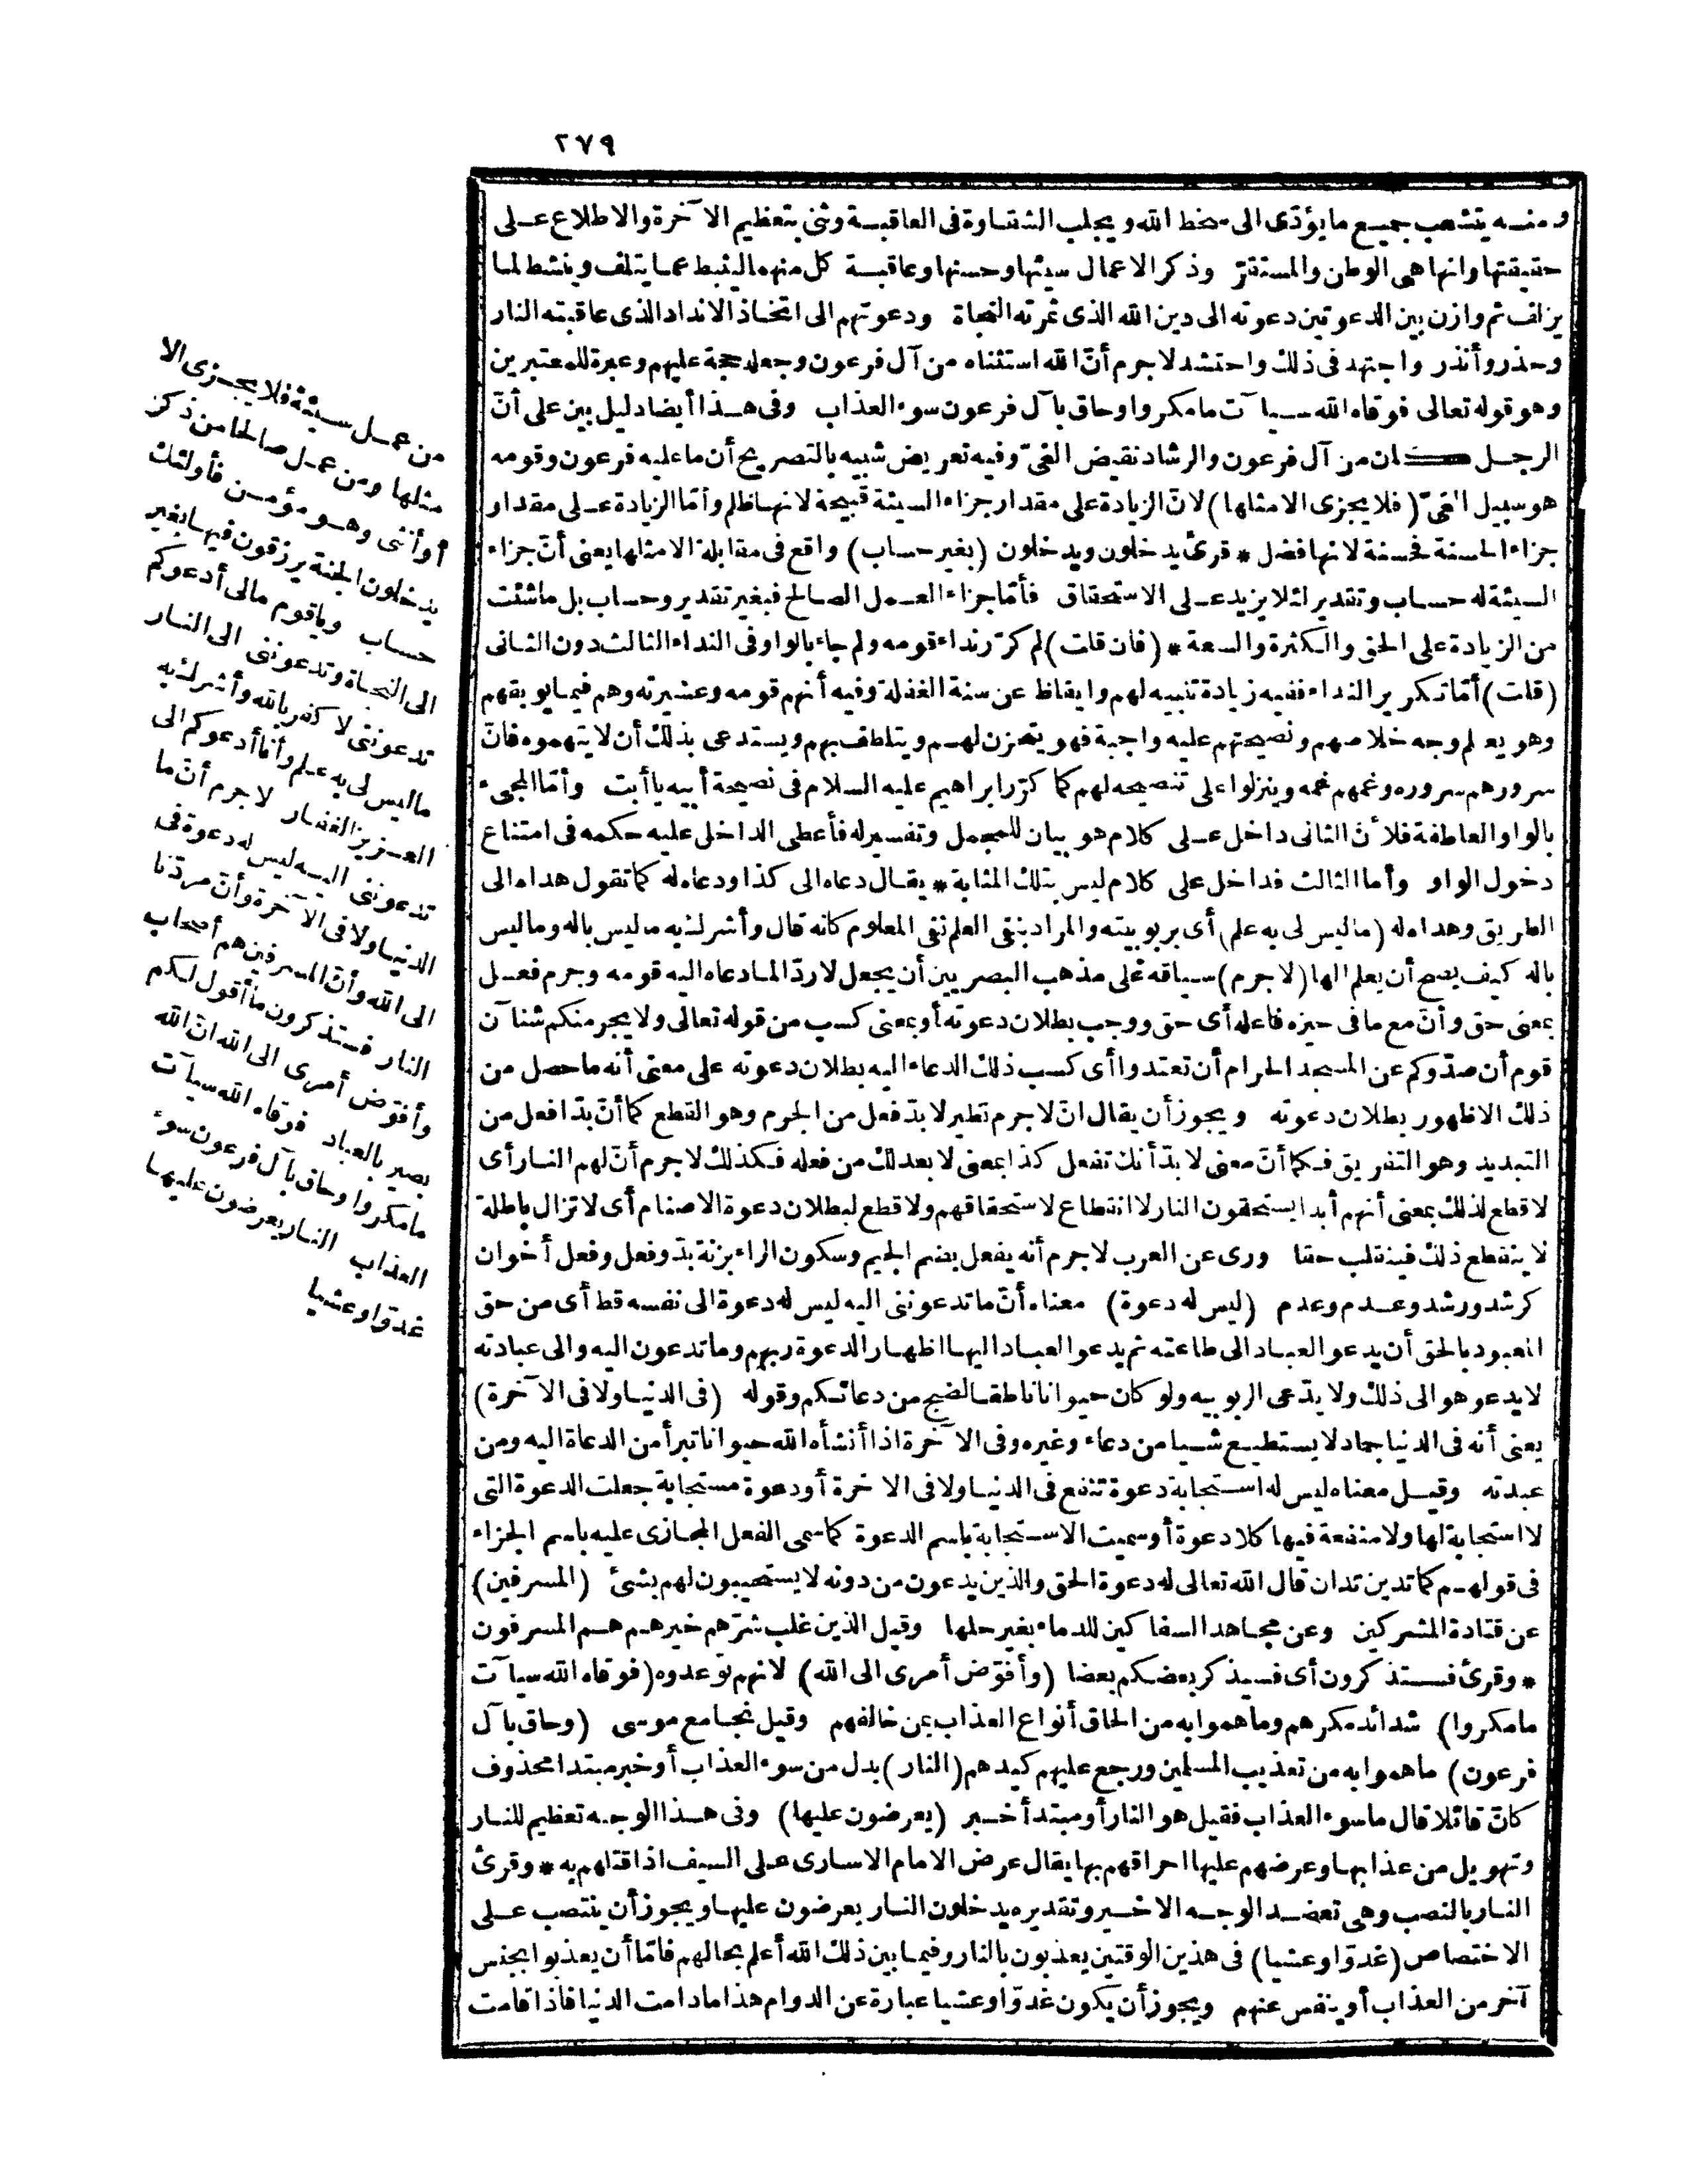 ٢٧٩
ومنه يتشعب جميع ما يؤدّى الى سخط الله ويجلب الشقاوة فى العاقبة وثنى بتعظيم الآخرة والاطلاع على
حقيقتها وانها هى الوطن والمستقرّ وذكر الاعمال سيئها وحسنها وعاقبة كل منهما ليثبط عما يتلف وينشط لما
يزلف ثم وازن بين الدعوتين دعوته الى دين الله الذى ثمرته النجاة ودعوتهم الى اتخاذ الانداد الذى عاقبته النار
وحذر وأنذر واجتهد فى ذلك واحتشد لا جرم أنّ الله استثناه من آل فرعون وجعله حجة عليهم وعبرة للمعتبرين
وهو قوله تعالى فوقاه الله سيآت ما مكروا وحاق بآل فرعون سوء العذاب وفى هذا أيضا دليل بين على أنّ
الرجل كان من آل فرعون والرشاد نقيض الغىّ وفيه تعريض شبيه بالتصريح أن ما عليه فرعون وقومه
هو سبيل الغىّ (فلا يجزى الا مثلها) لانّ الزيادة على مقدار جزاء السيئة قبيحة لانها ظلم وأمّا الزيادة على مقدار
جزاء الحسنة فحسنة لانها فضل * قرئ يدخلون ويدخلون (بغير حساب) واقع فى مقابلة الا مثلها يعنى أنّ جزاء
السيئة له حساب وتقدير لئلا يزيد على الاستحقاق فأمّا جزاء العمل الصالح فبغير تقدير وحساب بل ما شئت
من الزيادة على الحق والكثرة والسعة * (فان قلت) لم كرّر نداء قومه ولم جاء بالواو فى النداء الثالث دون الثانى
(قلت) أمّا تكرير النداء ففيه زيادة تنبيه لهم وايقاظ عن سنة الغفلة وفيه أنهم قومه وعشيرته وهم فيما يوبقهم
وهو يعلم وجه خلاصهم ونصيحتهم عليه واجبة فهو يتحزن لهم ويتلطف بهم ويستدعى بذلك أن لا يتهموه فانّ
سرورهم سروره وغمهم غمه وينزلوا على تنصيحه لهم كما كرّر ابراهيم عليه السلام فى نصيحة أبيه يا أبت وأمّا المجىء
بالواو العاطفة فلأنّ الثانى داخل على كلام هو بيان للمجمل وتفسير له فأعطى الداخل عليه حكمه فى امتناع
دخول الواو وأما الثالث فداخل على كلام ليس بتلك المثابة * يقال دعاه الى كذا ودعاه له كما تقول هداه الى
الطريق وهداه له (ما ليس لى به علم) أى بربوبيته والمراد بنفى العلم نفى المعلوم كانه قال وأشرك به ما ليس باله وما ليس
باله كيف يصح أن يعلم الها (لا جرم) سياقه على مذهب البصريين أن يجعل لا ردّا لما دعاه اليه قومه وجرم فعل
بمعنى حق وأنّ مع ما فى حيزه فاعله أى حق ووجب بطلان دعوته أو بمعنى كسب من قوله تعالى ولا يجرمنكم شنآن
قوم أن صدّوكم عن المسجد الحرام أن تعتدوا أى كسب ذلك الدعاء اليه بطلان دعوته على معنى أنه ما حصل من
ذلك الا ظهور بطلان دعوته ويجوز أن يقال انّ لا جرم نظير لا بدّ فعل من الجرم وهو القطع كما أنّ بدّا فعل من
التبديد وهو التفريق فكما أنّ معنى لا بدّ أنك تفعل كذا بمعنى لا بعد لك من فعله فكذلك لا جرم أنّ لهم النار أى
لا قطع لذلك بمعنى أنهم أبدا يستحقون النار لا انقطاع لاستحقاقهم ولا قطع لبطلان دعوة الاصنام أى لا تزال باطلة
لا ينقطع ذلك فينقلب حقا وروى عن العرب لا جرم أنه يفعل بضم الجيم وسكون الراء بزنة بدّ وفعل وفعل أخوان
كرشد ورشد وعدم وعدم (ليس له دعوة) معناه أنّ ما تدعوننى اليه ليس له دعوة الى نفسه قط أى من حق
المعبود بالحق أن يدعو العباد الى طاعته ثم يدعو العباد اليها اظهارا لدعوة ربهم وما تدعون اليه والى عبادته
لا يدعو هو الى ذلك ولا يدّعى الربوبيه ولو كان حيوانا ناطقا لضج من دعائكم وقوله (فى الدنيا ولا فى الآخرة)
يعنى أنه فى الدنيا جماد لا يستطيع شيا من دعاء وغيره وفى الآخرة اذا أنشأه الله حيوانا تبرأ من الدعاة اليه ومن
عبدته وقيل معناه ليس له استجابة دعوة تنفع فى الدنيا ولا فى الآخرة أو دعوة مستجابة جعلت الدعوة التى
لا استجابة لها ولا منفعة فيها كلا دعوة أو سميت الاستجابة باسم الدعوة كما سمى الفعل المجازى عليه باسم الجزاء
فى قولهم كما تدين تدان قال الله تعالى له دعوة الحق والذين يدعون من دونه لا يستجيبون لهم بشئ (المسرفين)
عن قتادة المشركين وعن مجاهد السفاكين للدماء بغير حلها وقيل الذين غلب شرّهم خيرهم هم المسرفون
* وقرئ فستذكرون أى فسيذكر بعضكم بعضا (وأفوّض أمرى الى الله) لانهم توعدوه (فوقاه الله سيآت
ما مكروا) شدائد مكرهم وما هموا به من الحاق أنواع العذاب بمن خالفهم وقيل نجا مع موسى (وحاق بآل
فرعون) ما هموا به من تعذيب المسلمين ورجع عليهم كيدهم (النار) بدل من سوء العذاب أو خبر مبتدا محذوف
كانّ قائلا قال ما سوء العذاب فقيل هو النار أو مبتدأ خبر (يعرضون عليها) وفى هذا الوجه تعظيم للنار
وتهويل من عذابها وعرضهم عليها احراقهم بها يقال عرض الامام الاسارى على السيف اذا قتلهم به * وقرئ
النار بالنصب وهى تعضد الوجه الاخير وتقديره يدخلون النار يعرضون عليها ويجوز أن ينتصب على
الاختصاص (غدوّا وعشيا) فى هذين الوقتين يعذبون بالنار وفيما بين ذلك الله أعلم بحالهم فامّا أن يعذبوا بجنس
آخر من العذاب أو ينفس عنهم ويجوز أن يكون غدوّا وعشيا عبارة عن الدوام هذا ما دامت الدنيا فاذا قامت
من عمل سيئة فلا يجزى الا
مثلها ومن عمل صالحا من ذكر
أو أنثى وهو مؤمن فأولئك
يدخلون الجنة يرزقون فيها بغير
حساب ويا قوم مالى أدعوكم
الى النجاة وتدعوننى الى النار
تدعوننى لا كفر بالله وأشرك به
ما ليس لى به علم وأنا أدعوكم الى
العزيز الغفار لا جرم أنّ ما
تدعوننى اليه ليس له دعوة فى
الدنيا ولا فى الآخرة وأنّ مردّنا
الى الله وأنّ المسرفين هم أصحاب
النار فستذكرون ما أقول لكم
وأفوّض أمرى الى الله انّ الله
بصير بالعباد فوقاه الله سيآت
ما مكروا وحاق بآل فرعون سوء
العذاب النار يعرضون عليها
غدوّا وعشيا